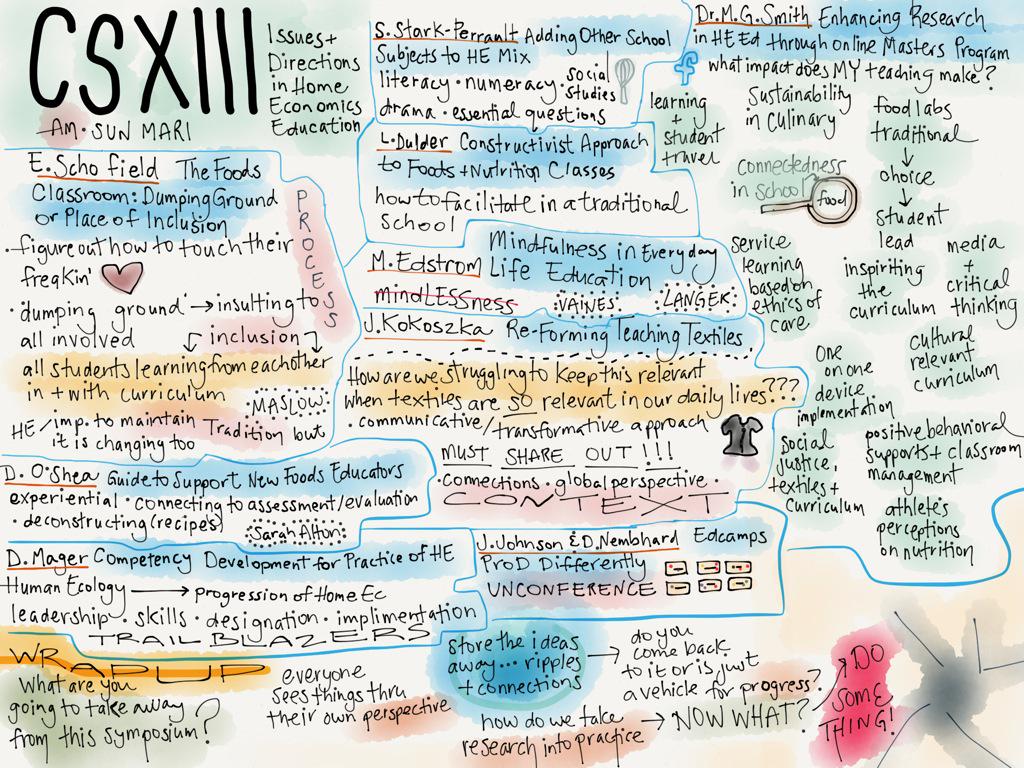 CSXIII
Issues+
Directions
in Home
Economics
Education
AM·SUN MARI
E. Scho field The Foods
Classroom: Dumping Ground
or Place of Inclusion
PROCESS
·figure out how to touch their
freakin'
·dumping ground → insulting to
all involved
inclusion
all students learning from eachother
in + with curriculum
MASLOW
HE/imp. to maintain Tradition but
it is changing too
D. O'Shea Guide to Support New Foods Educators
experiential · connecting to assessment/evaluation
· deconstructing (recipes)
Sarah Alton
D. Mager Competency Development for Practice of HE
Human Ecology → progression of Home Ec
leadership · skills · designation · implimentation
TRAIL BLAZERS
S. Stork-Perrault Adding Other School
Subjects to HE Mix
literacy · numeracy · social
studies
drama · essential questions
L. Dulder Constructivist Approach
to Foods + Nutrition Classes
how to facilitate in a traditional
school
M. Edstrom Mindfulness in Everyday
Life Education
mindLESSness
VAINES
LANGER
J. Kokoszka Re-Forming Teaching Textiles
How are we struggling to keep this relevant
when textiles are so relevant in our daily lives???
· communicative/transformative approach
MUST SHARE OUT!!!
· connections · global perspective ·
CONTEXT
J. Johnson & D. Nembhard Edcamps
ProD Differently
UNCONFERENCE
Dr. M.G. Smith Enhancing Research
in HE Ed through online Masters Program
what impact does MY teaching make?
f
learning
+
student
travel
Sustainability
in Culinary
food labs
traditional
↓
choice
↓
student
lead
connectedness
in school
food
service
learning
based on
ethics of
care
inspiriting
the
curriculum
media
+
critical
thinking
one
on one
device
implementation
cultural
relevant
curriculum
social
justice,
textiles+
Curriculum
positive behavioral
supports + classroom
management
athlete's
perceptions
on nutrition
WRAPUP
What are you
going to take away
from this symposium?
everyone
sees things thru
their own perspective
store the ideas
away... ripples
+ connections
→ do you
come back
to it or is just
a vehicle for progress?
how do we take
research into practice
→ NOW WHAT?
DO
SOME
THING!